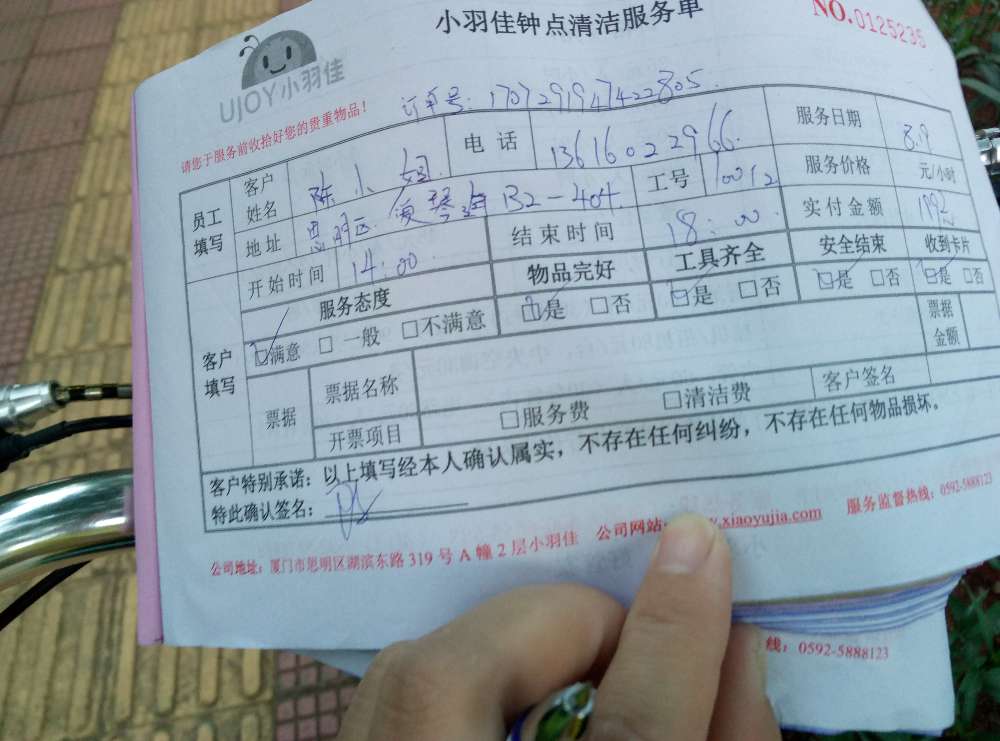 小羽佳钟点清洁服务单
NO.0125235
UJOY小羽佳
请您于服务前收拾好您的贵重物品！
订单号：1707291947422805
员工填写 客户姓名 陈小姐 电话 13616022966 服务日期 8.9
地址 思明区 B2-404 工号 10012 服务价格 元/小时
开始时间 14:00 结束时间 18:00 实付金额
服务态度 物品完好 工具齐全 安全结束 收到卡片
客户填写 ☑满意 □一般 □不满意 ☑是 □否 ☑是 □否 ☑是 □否 ☑是 □否
票据 票据名称 票据金额
开票项目 □服务费 □清洁费 客户签名
客户特别承诺：以上填写经本人确认属实，不存在任何纠纷，不存在任何物品损坏。
特此确认签名：
公司地址：厦门市思明区湖滨东路319号A幢2层小羽佳 公司网站： .xiaoyujia.com 服务监督热线：0592-5888123
线：0592-5888123